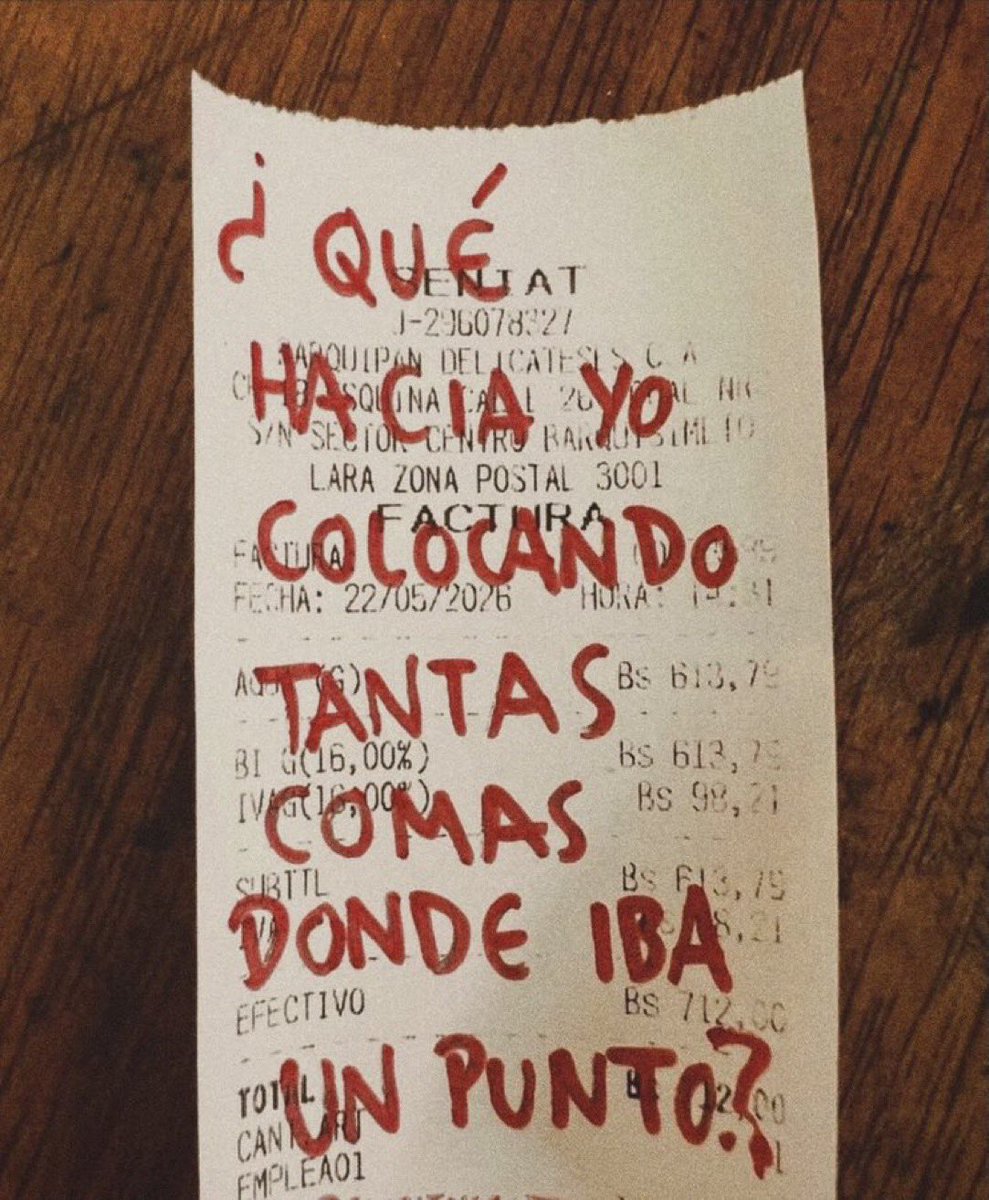 ¿QUÉ
HACIA YO
COLOCANDO
TANTAS
COMAS
DONDE IBA
UN PUNTO?
SENIAT
J-296078327
DELICATESES C A
S/N SECTOR CENTRO BARQUISIMETO
LARA ZONA POSTAL 3001
FACTURA
FACTURA
FECHA: 22/05/2026 HORA:
(G) Bs 613,79
BI G(16,00%) Bs 613,79
IVAG(16,00%) Bs 98,21
SUBTTL Bs 613,79
EFECTIVO Bs 712,00
TOTAL
CANT ART
EMPLEA01